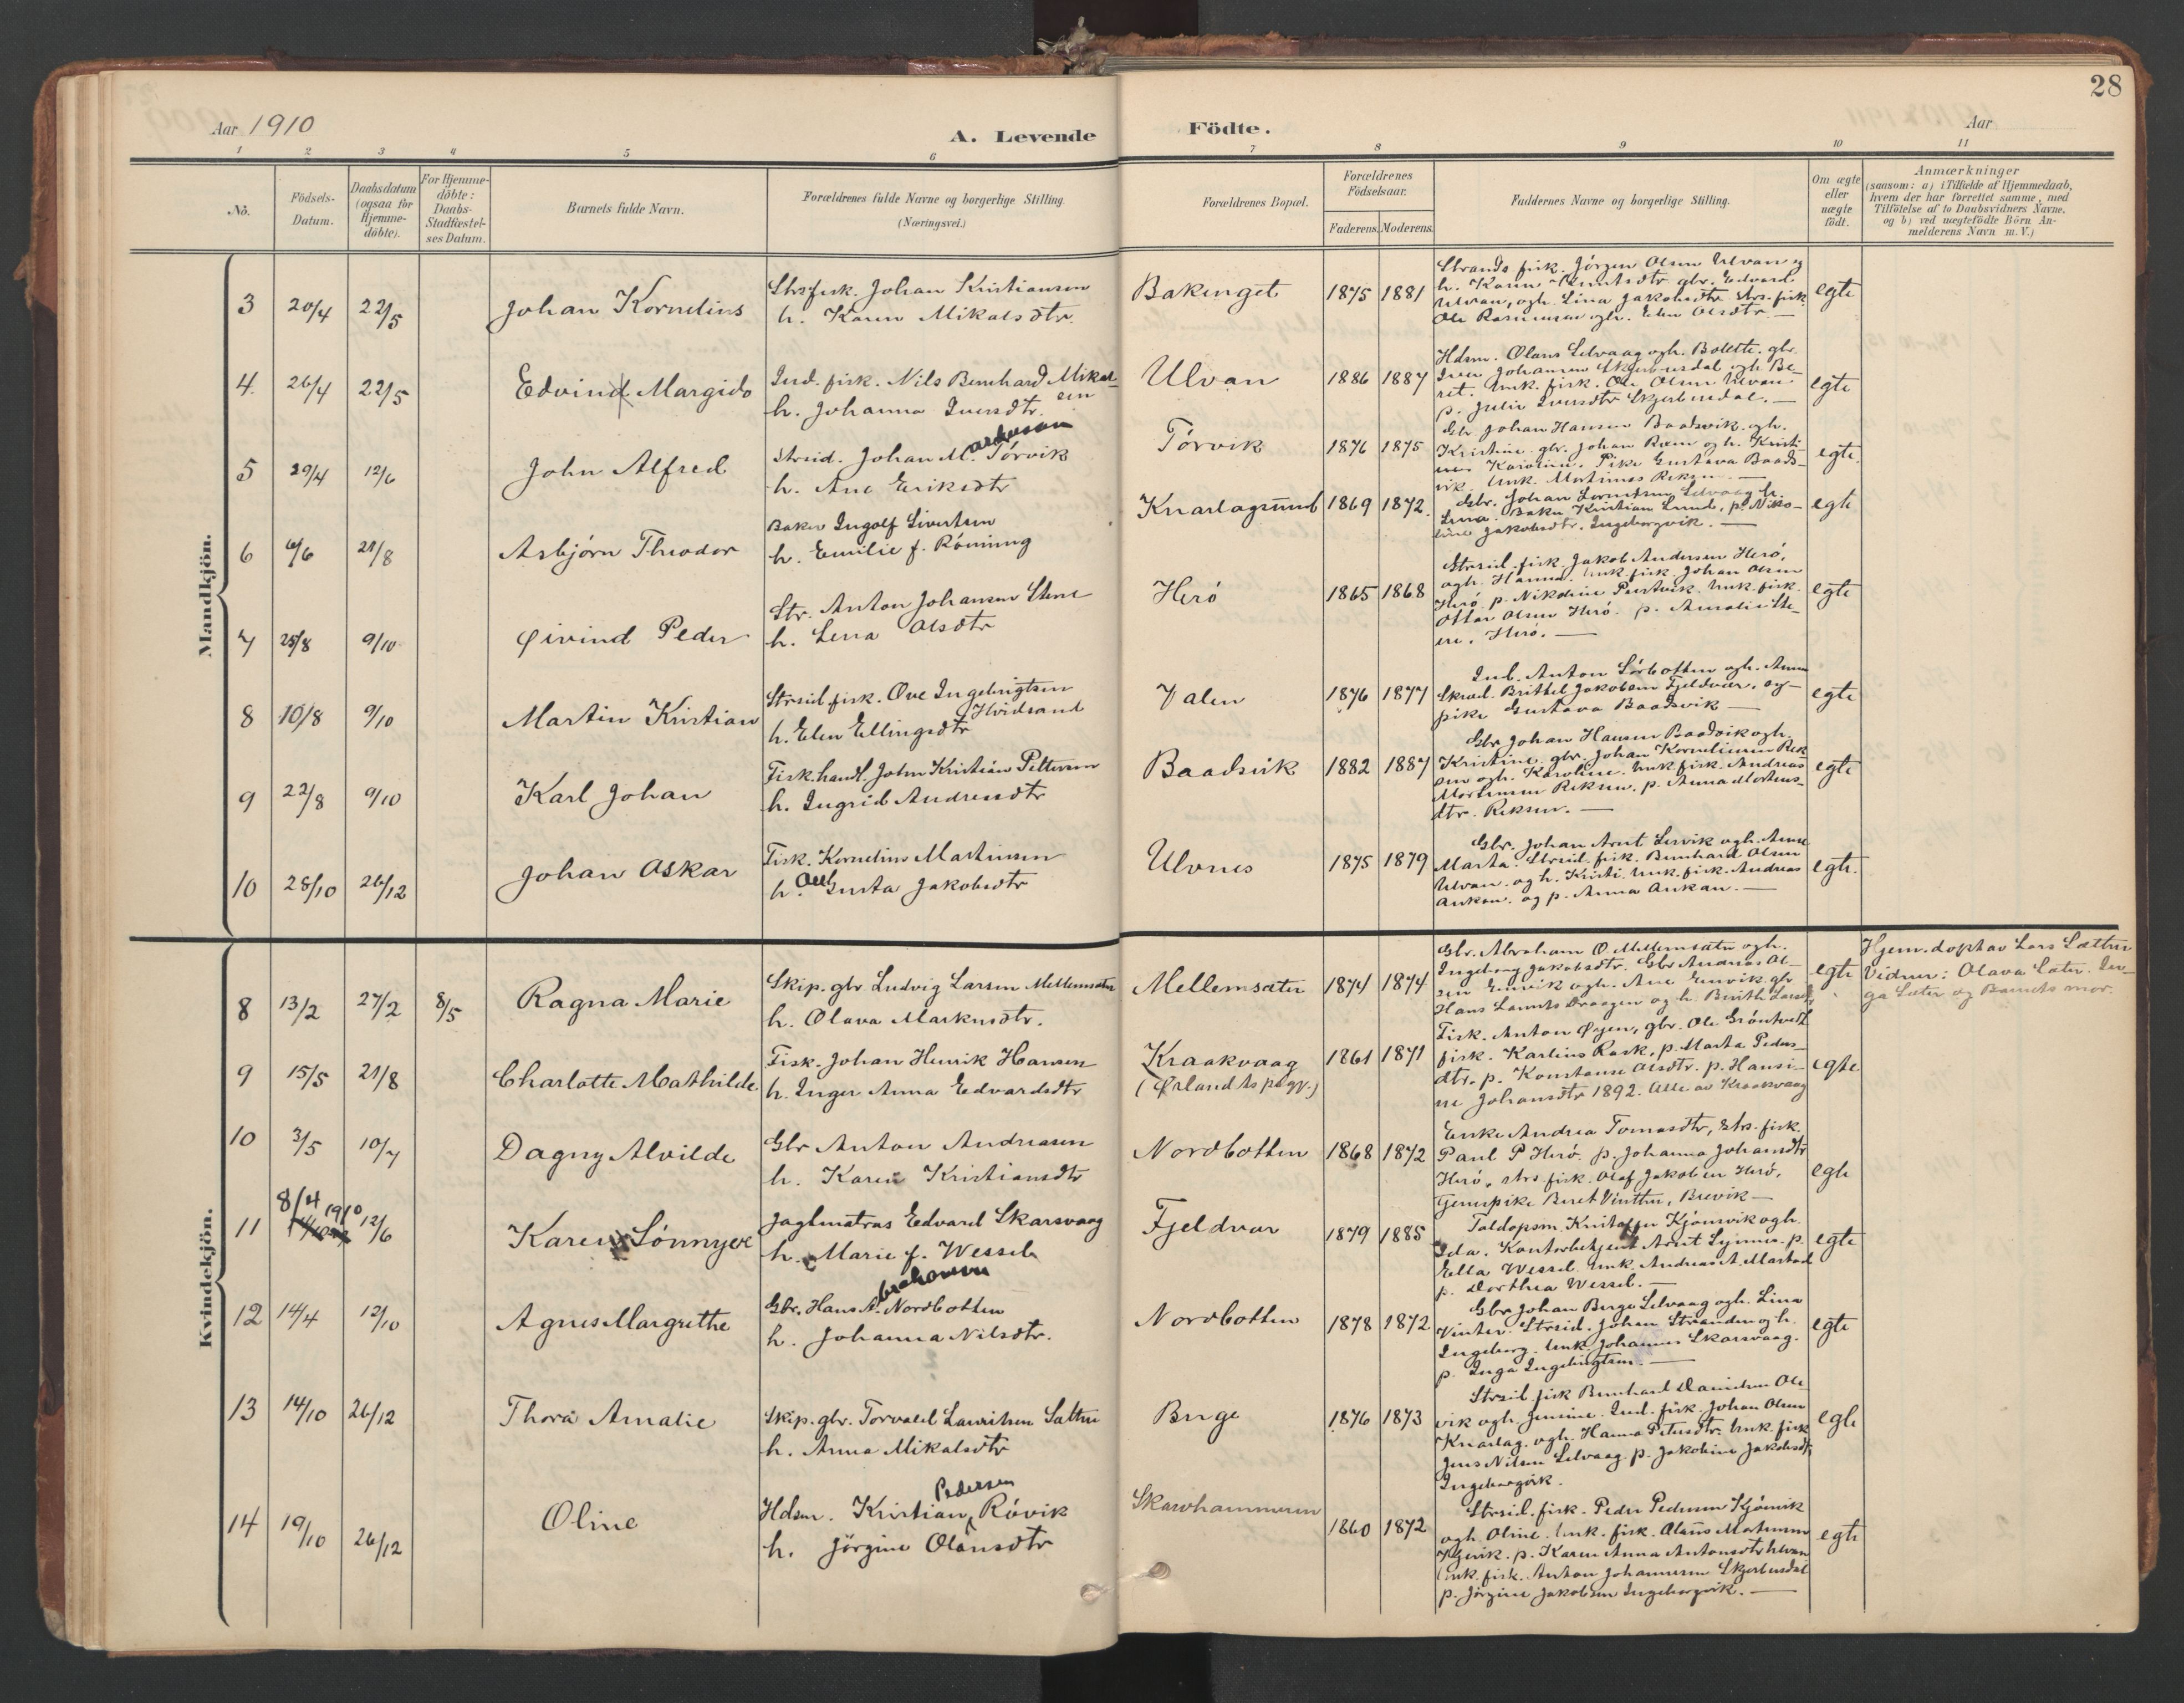 28
Aar 1910
A. Levende Födte.
Aar
1 2 3 4 5 6 7 8 9 10 11
No.
Födsels-Datum.
Daabsdatum (ogsaa for Hjemme-döbte).
For Hjemme-döbte: Daabs-Stadfæstel-ses Datum.
Barnets fulde Navn.
Forældrenes fulde Navne og borgerlige Stilling. (Næringsvei.)
Forældrenes Bopæl.
Forældrenes Födselsaar.
Faderens. Moderens.
Faddernes Navne og borgerlige Stilling.
Om ægte eller uægte födt.
Anmærkninger (saasom: a) i Tilfælde af Hjemmedaab, hvem der har forrettet samme, med Tilföielse af to Daabsvidners Navne, og b) ved uegtefödte Börn An-melderens Navn m. V.)
Mandkjön.
3 20/4 22/5 Johan Kornelius
Strsfisk. Johan Kristiansen
h. Karen Mikalsdtr.
Bakenget 1875 1881
Strands fisk. Jörgen Olsen Ulvan og
h. Karen gbr. Edvard
Ulvan, ogh. Lina Jakobsdtr. Strs. fisk.
Ole Rasmussen ogh. Elen Olsdtr. —
egte
4. 26/4 22/5 Edvind Margido
Ind. fisk. Nils Bernhard Mikal-
sen
h. Johanna Iversdtr.
Ulvan 1886 1887
Hdsm. Olaus Selvaag ogh. Bolette. gbr.
Iver Johansen Skjerbusdal ogh. Be-
ret. Unk. fisk. Ole Olsen Ulvan
p. Julie Iversdtr Skjerbusdal. —
egte
5 29/4 12/6 John Alfred
Strsid. Johan M. Tórvik
h. Ane Eriksdtr
Tórvik 1876 1875
Gbr. Johan Hansen Baadsvik. ogh.
Kristine. gbr. Johan ogh. Kristi
Karoline. Pike Gustava Baads-
vik. Unk. Mortinus Reksen. —
egte.
6 6/6 21/8 Asbjórn Theodor
Baker Ingolf Sivertsen
h. Emilie f. Rónning
Knarlagsund 1869 1872.
Gbr. Johan Selvaag h.
Lina. Baker Kristian Lund, p. Niko-
line Jakobsdtr. Ingeborgvik. —
egte
7 25/8 9/10 Øivind Peder
Str. Anton Johansen Stene
h. Lena Olsdtr
Heró 1865 1868
Strsid. fisk. Jakob Andersen Heró,
ogh. Hanna. Unk. fisk. Johan Olsen
Heró p. Nikoline Unk. fisk.
Ottar Olsen Heró. p. Amalie Ste-
ne. Heró. —
egte
8 10/8 9/10 Martin Kristian
Strsid. fisk. Ove Ingebrigtsen
Hvidsand
h. Elen Ellingsdtr
Valen 1876 1877
Ind. Anton Sórbotten ogh. Anna
Skræd. Brithel Jakobsen Fjeldvær, og
pike Gustava Baadsvik —
egte
9 22/8 9/10 Karl Johan
Fisk.handl. John Kristian Pettersen
h. Ingrid Andreasdtr
Baadsvik 1882 1887
Gbr Johan Hansen Baadsvik ogh.
Kristine. gbr. Johan Korneliussen Rek
sen ogh. Karoline. Unk. fisk. Andreas
Mortensen Reksen. p. Anna Mortens-
dtr. Reksen. —
egte
10 28/10 26/12 Johan Oskar
Fisk. Kornelius Martinsen
h. Gusta Jakobsdtr
Ulvnes 1875 1879
Gbr. Johan Arnt Lervik ogh. Anne
Marta. Strsid. fisk. Bernhard Olsen
Ulvan. og h. Kristi. Unk. fisk. Andreas
Aukan. og p. Anna Aukan. —
egte.
Kvindekjön.
8 13/2 27/2 8/5 Ragna Marie
Skip. gbr Ludvig Larsen Mellemsæter
h. Olava Markusdtr.
Mellemsæter 1874 1874
Gbr. Abraham O. Mellemsæter ogh.
Ingeborg Jakobsdtr. Gbr Andreas Ol-
sen Gurvik ogh. Ane Gurvik gbr
Hans og h. Berith Larsdtr
egte
Hjem. dopt av Lars Sætter
Vidner: Olava Sæter. In-
ga Sæter og Barnets mor.
9 15/5 21/8 Charlotte Mathilde
Fisk. Johan Henrik Hansen
h. Inger Anna Edvardsdtr
Kraakvaag 1861 1871
(Ørlandets pgj.)
Fisk. Anton Øyen, gbr. Ole Gröntvedt
fisk. Karlius Rask, p. Marta Peders-
dtr. p. Konstanse Olsdtr. p. Hansi-
ne Johansdtr 1892. Alle av Kraakvaag
egte
10 3/5 10/7 Dagny Alvilde
Gbr Anton Andreasen
h. Karen Kristiansdtr
Nordbotten 1868 1872
Enke Andrea Tomasdtr, Strs. fisk.
Paul P Heró. p. Johanna Johansdtr
Heró, strs. fisk. Olaf Jakobsen Heró,
Tjenepike Beret Vinther, Brevik —
egte
11 8/4 1910 12/6 Karen Sónnyee
Jagtmatros Edvard Skarsvaag
h. Marie f. Wessel
Fjeldvær 1879 1885
Toldopsm. Kristoffer Kjónsvik ogh.
Ida. Kontorbetjent Arnt p.
Ella Wessel. Unk. Andreas A. Mastad
p. Dorthea Wessel. —
egte
12 14/4 12/10 Agnes Margrethe
Gbr. Hans A. Nordbotten
h. Johanna Nilsdtr.
Nordbotten 1878 1872
Gbr Johan Berge Selvaag ogh. Lina
Vinter. Strsid. Johan Stranden og h.
Ingeborg. Unk. Johannes Skarsvaag.
p. Inga Ingebrigtsen. —
egte
13 14/10 26/12 Thora Amalie
Skip. gbr. Torvald Lauritsen Sætter
h. Anna Mikalsdtr
Berge 1876 1873
Strsid. fisk Bernhard Danielsen Ole-
vik ogh. Jensine. Ind. fisk. Johan Olsen
Knarlag. ogh. Hanna Petersdtr. Unk. fisk
Jens Nilsen Selvaag p. Jakobine Jakobsdtr
Ingeborgvik.
egte
14 19/10 26/12 Oline
Pedersen
Hdsm. Kristian Róvik
h. Jörgine Olausdtr
Skarvhammeren 1860 1872
Strsid. fisk. Peder Pedersen Kjónsvik
ogh. Oline. Unk. fisk. Olaus Martinsen
p. Karen Anna Antonsdtr Ulvan
Unk. fisk. Anton Johannesen Skjerbusdal
p. Jörgine Jakobsen Ingeborgvik. —
egte